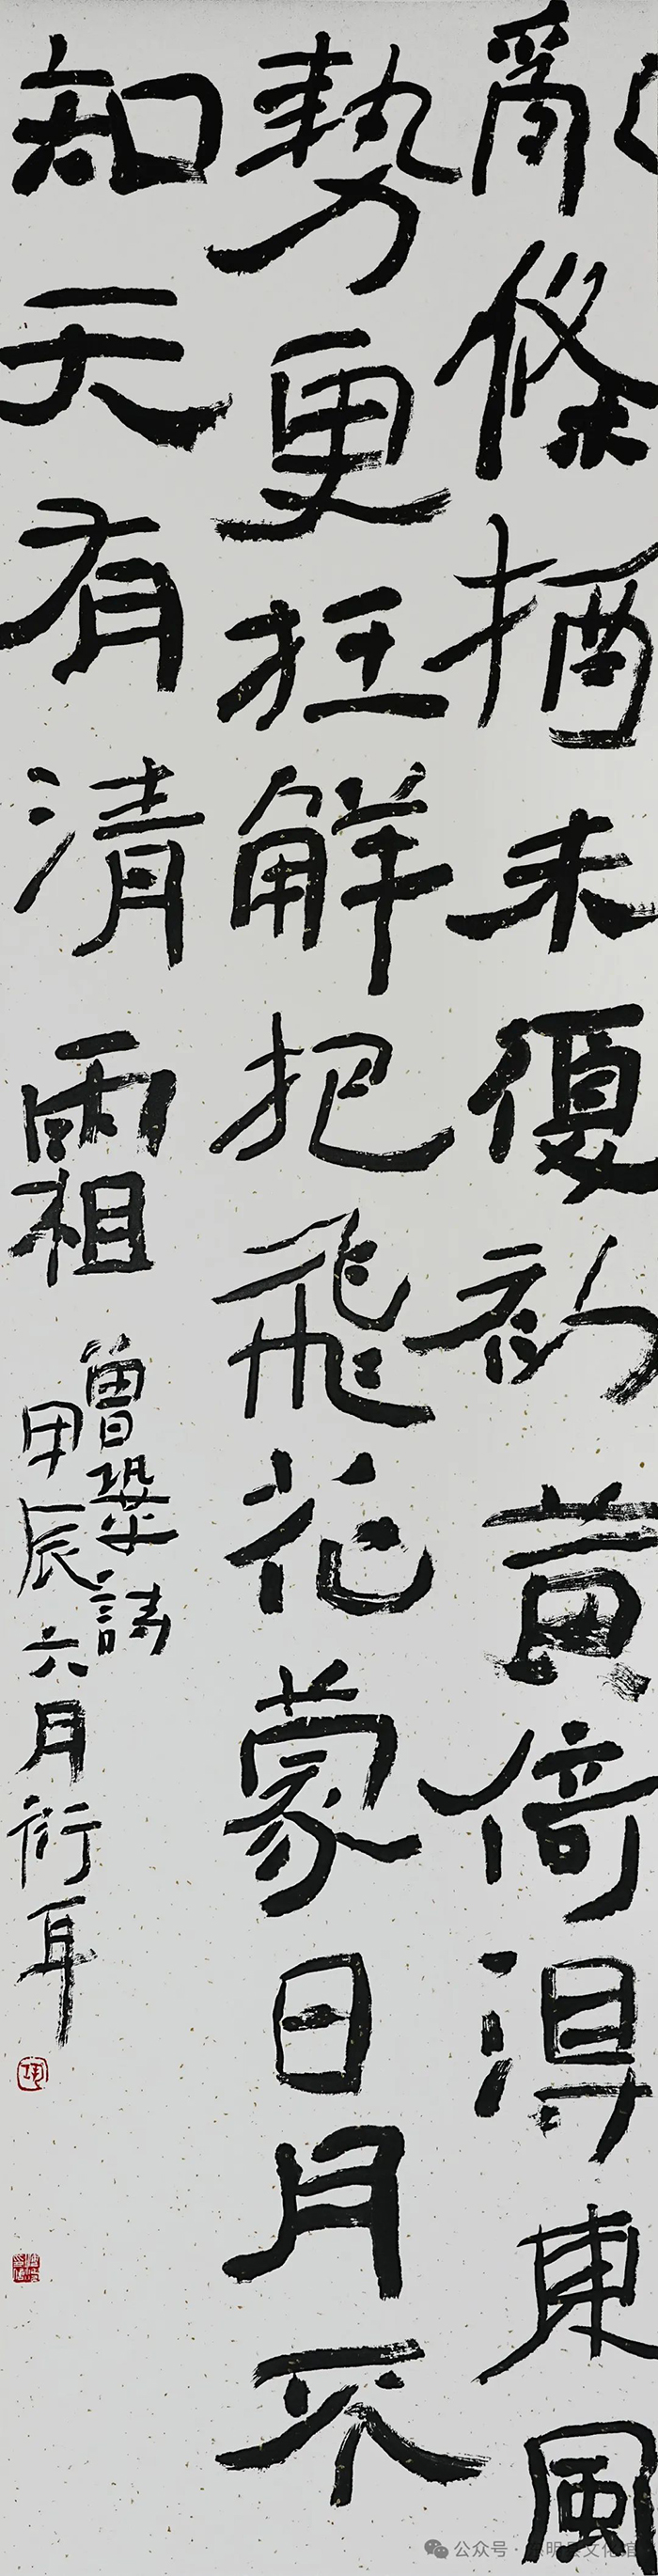 亂條猶未初黃倚得東風
勢更狂解把飛花蒙日月不
知天有清霜
曾鞏詩
甲辰六月衍耳
公众号 · 明县文化馆